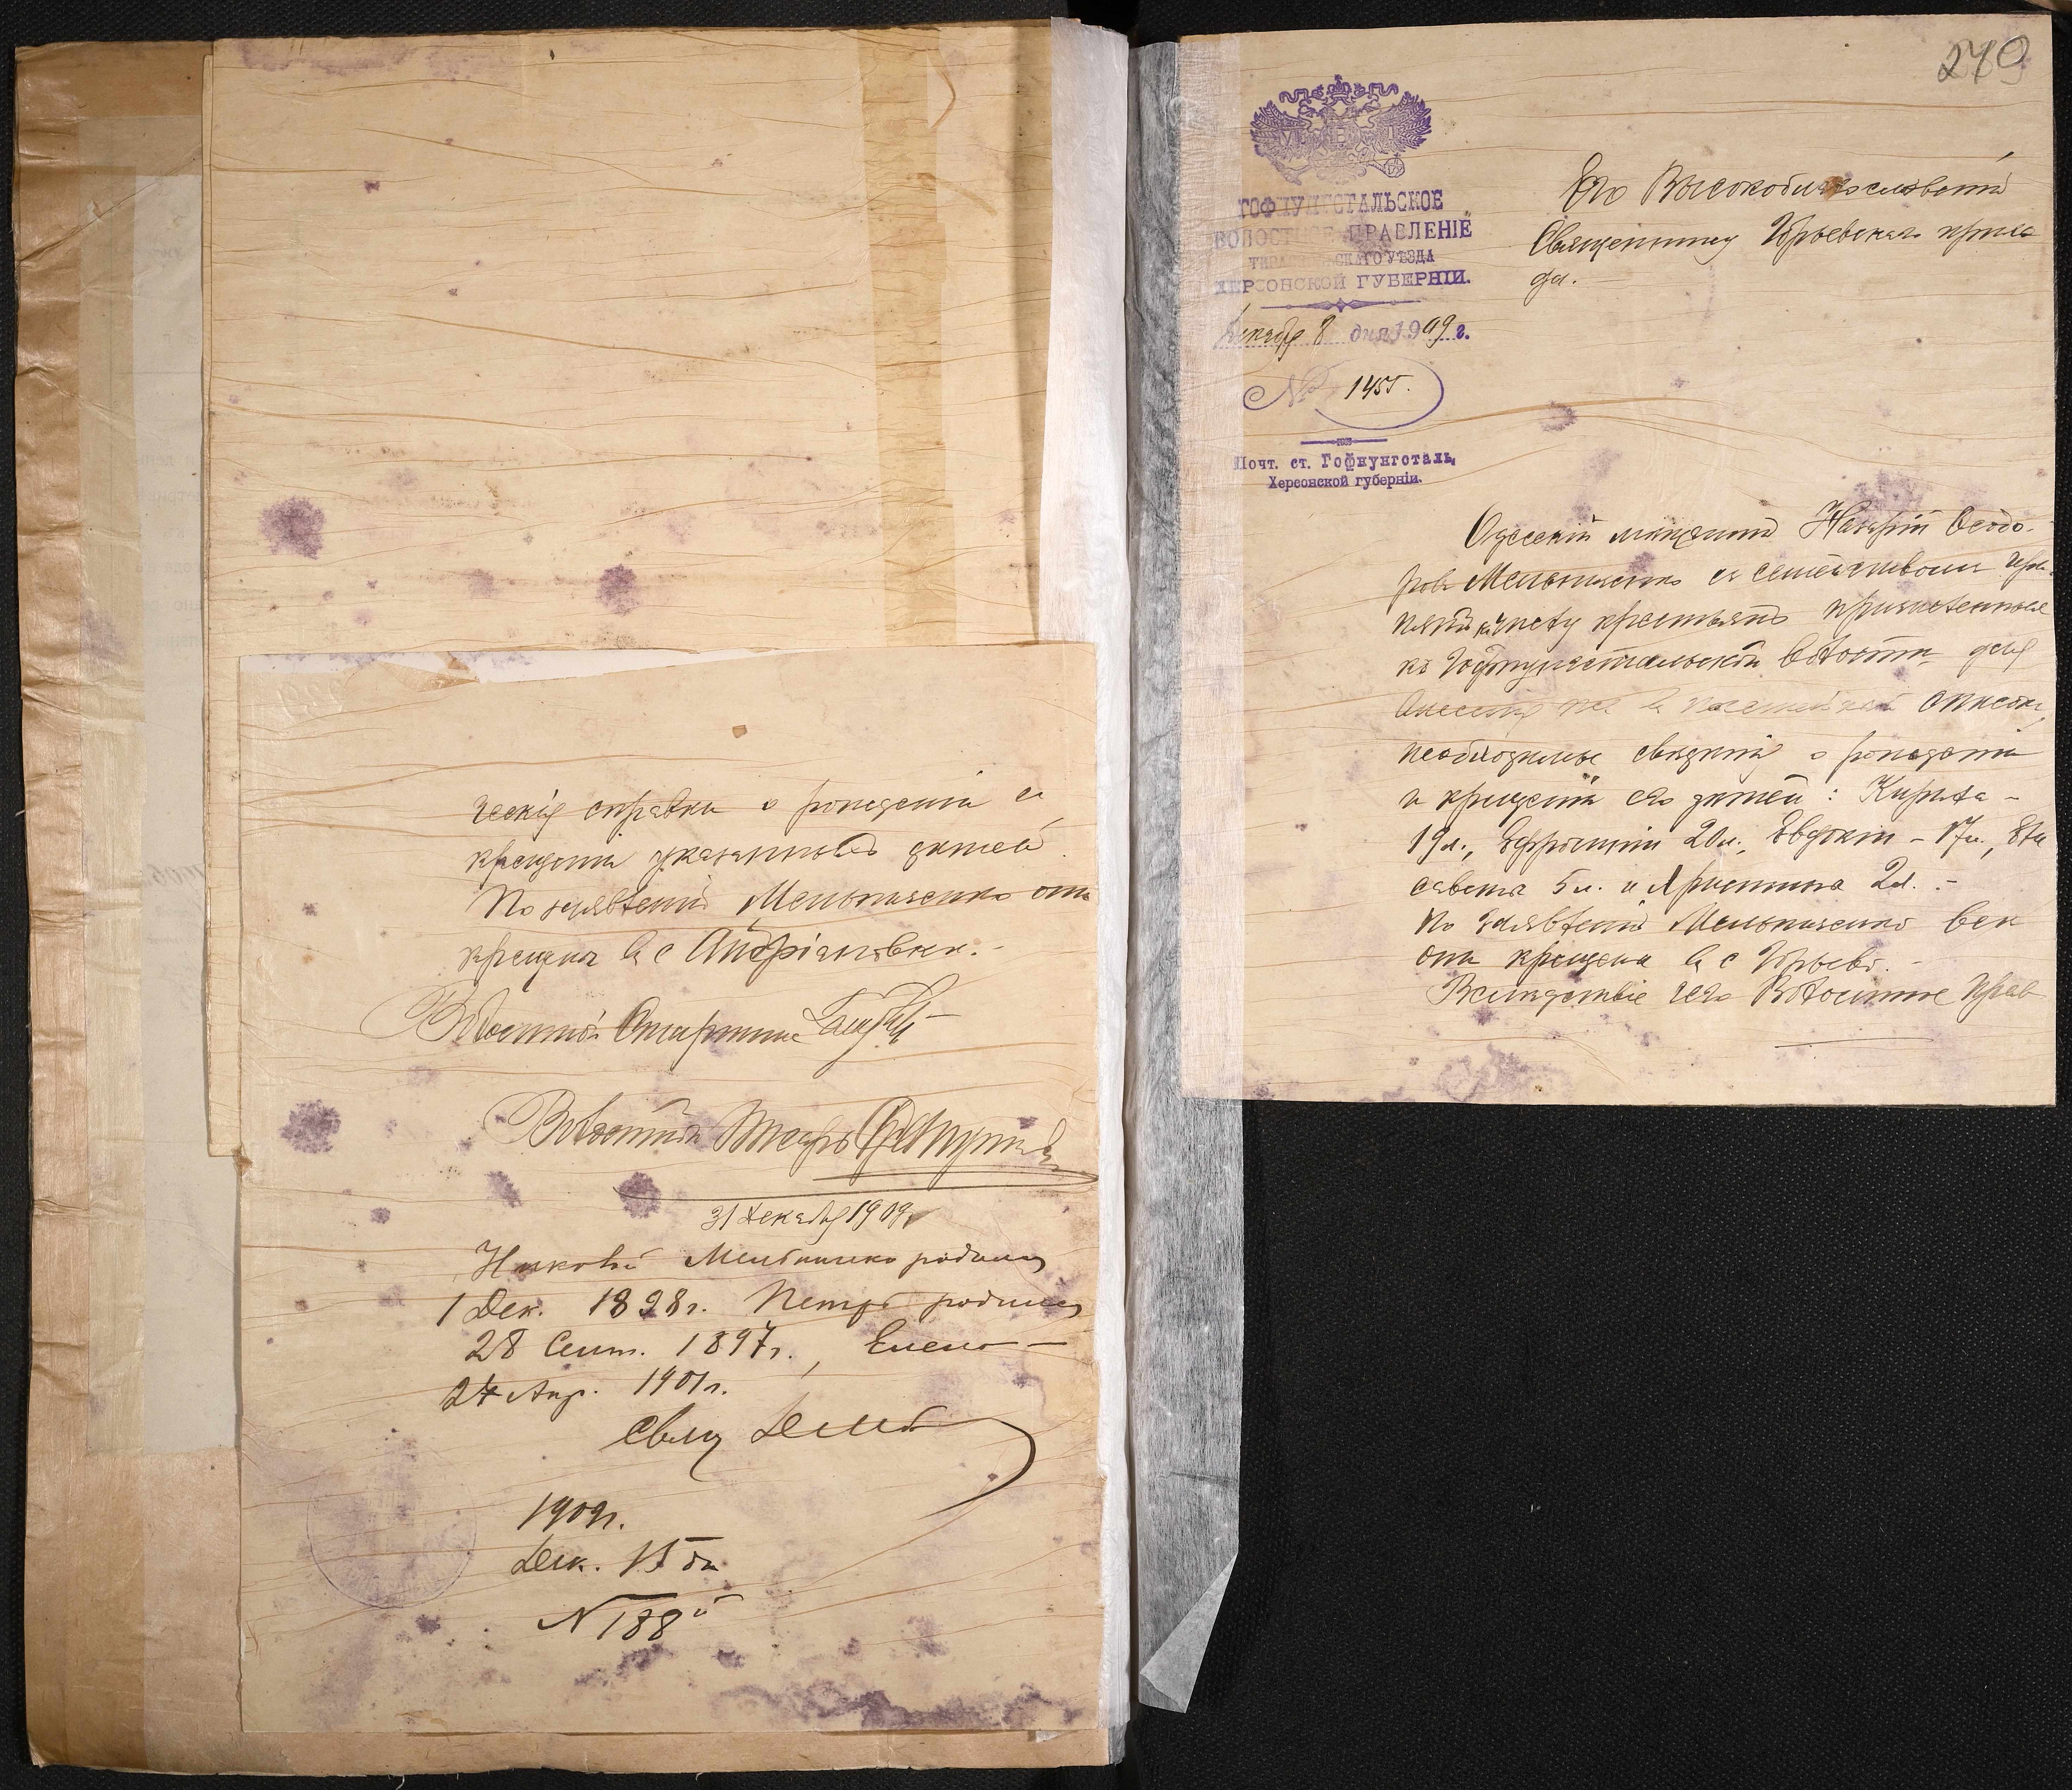 ческія справки о рожденіи и
крещеніи указанныхъ дѣтей.
По заявленію Мельниченко они
крещены въ с Андріяновки. -
Волостной Старшина
Волостной Писарь
31 Декабря 1909г
Мельниченко родился
1 Дек. 1898 г. Петръ родился
28 Сент. 1897 г., Елена —
24 Апр. 1901 г.
Свящ
1909г.
Дек. 15 дн
№ 188й
279
ГОФНУНГСТАЛЬСКОЕ
ВОЛОСТНОЕ ПРАВЛЕНІЕ
ТИРАСПОЛЬСКАГО УѢЗДА
ХЕРСОНСКОЙ ГУБЕРНІИ.
Декабря 8 дня 1909 г.
№ 1455.
Почт. ст. Гофнунгсталь,
Херсонской губерніи.
Его Высокоблагословенію
Священнику Юрьевскаго прихо
да.
Одесскій мѣщанинъ Назарій Ѳеодо-
ровъ Мельниченко съ семействомъ при-
нятъ къ числу крестьянъ приписанныхъ
къ Гофнунгстальской волости для
внесенія въ посемейный списокъ,
необходимы свѣдѣнія о рожденіи
и крещеніи его дѣтей: Кирилла -
19 л., Ефросиніи 20 л., Евдокіи - 17 л., Ели
савета 5 л. и Христина 2 л. -
По заявленію Мельниченко всѣ
они крещены въ с Юрьево. -
Вслѣдствіе чего Волостное Прав